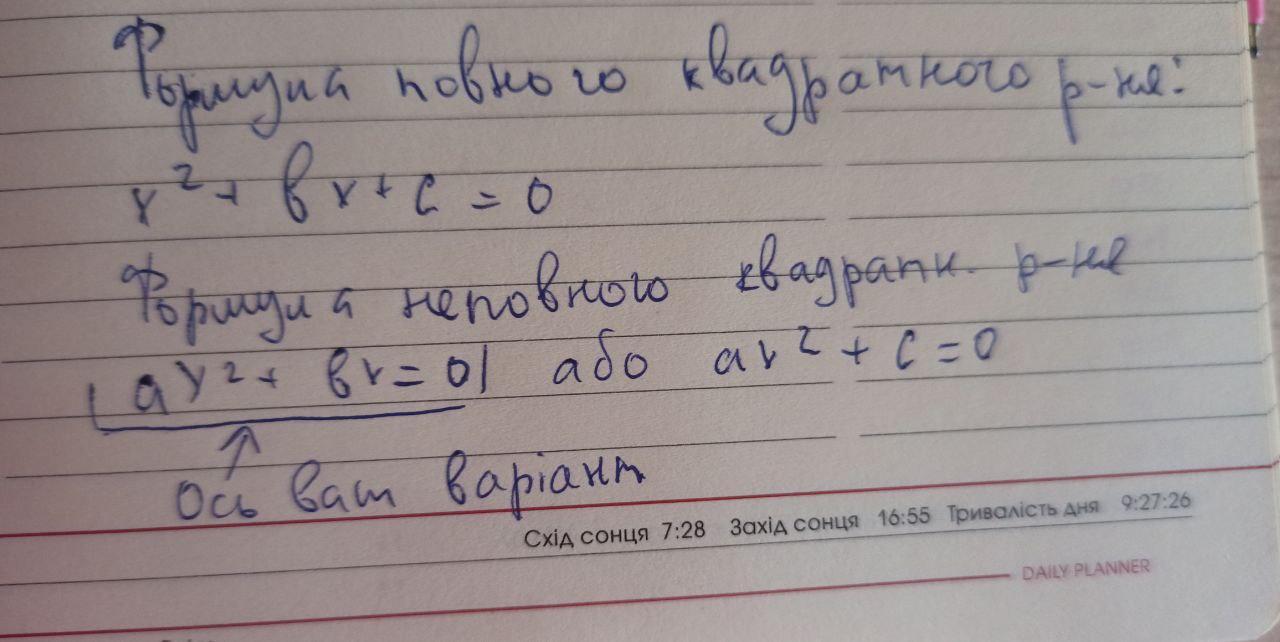 Формула повного квадратного р-ня:
x² + вx + c = 0
Формула неповного квадратн. р-ня
ax² + вx = 0 або ax² + c = 0
Ось ваш варіант
Схід сонця 7:28 Захід сонця 16:55 Тривалість дня 9:27:26
DAILY PLANNER